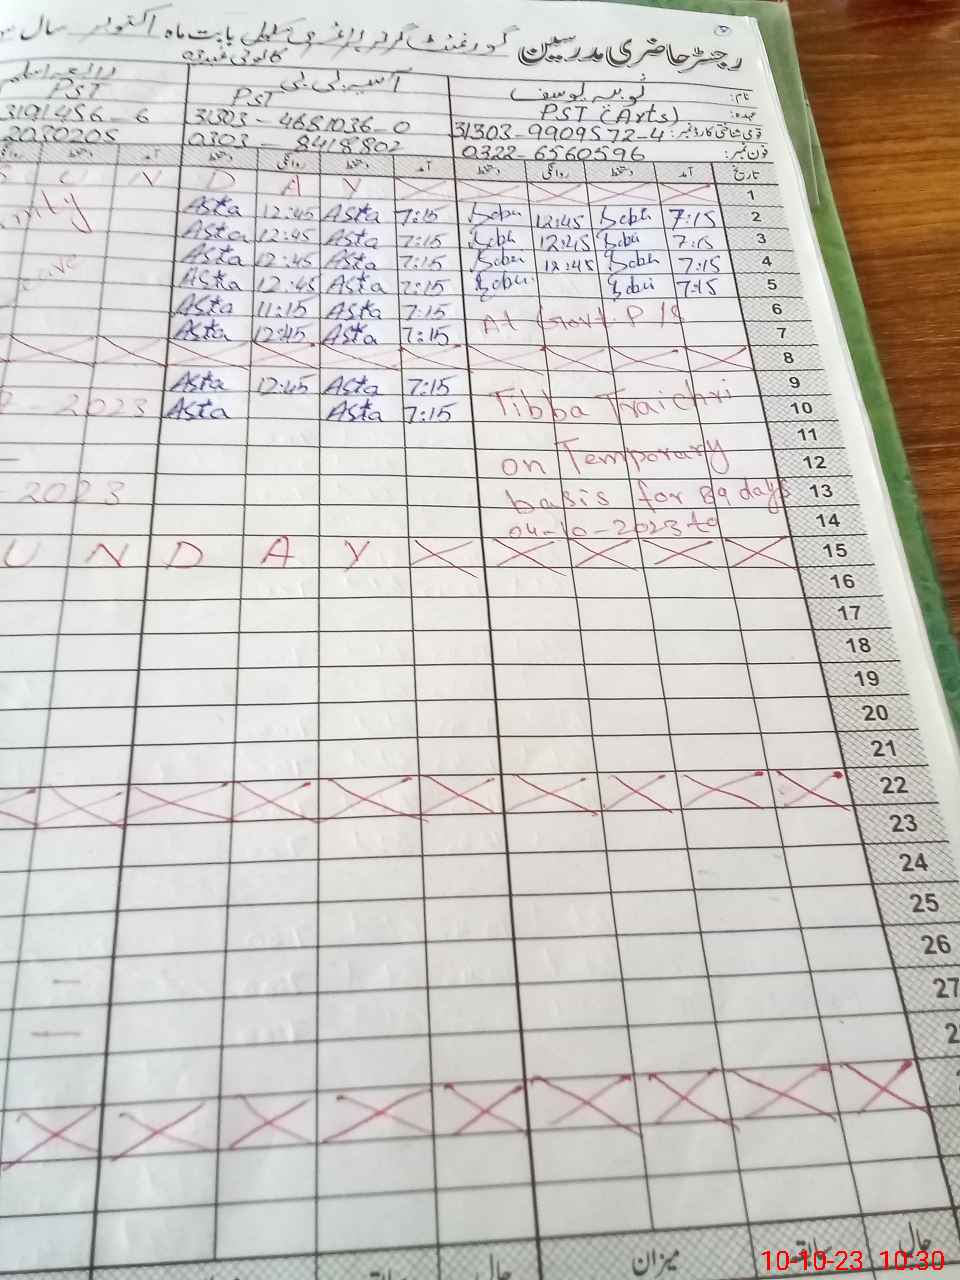 رجسٹر حاضری مدرسین گورنمنٹ گرلز پرائمری سکول بابت ماہ اکتوبر سال
نام: ثوبیہ یوسف آسیہ بی بی
عہدہ: PST (Arts) PST PST
قومی شناختی کارڈ نمبر: 31303-9909572-4 31303-4681036-0 3191456-6
فون نمبر: 0322-6560596 0303-8418802 2030205
تاریخ آمد دستخط روانگی دستخط آمد دستخط روانگی دستخط آمد دستخط
1 U N D A Y
2 7:15 12:45 7:15 Asta 12:45 Asta
3 7:15 12:45 7:15 Asta 12:45 Asta
4 7:15 12:45 7:15 Asta 12:45 Asta
5 7:15 7:15 Asta 12:45 Asta
6 7:15 Asta 11:15 Asta
At Govt. P/S
7 7:15 Asta 12:45 Asta
8
9 7:15 Asta 12:45 Asta
Tibba Traichri
10 7:15 Asta Asta 2023
11
12 on Temporary
13 basis for 89 days 2023
14 04-10-2023 to
15 U N D A Y
16
17
18
19
20
21
22
23
24
25
26
27
حال سابقہ میزان حال
10-10-23 10:30